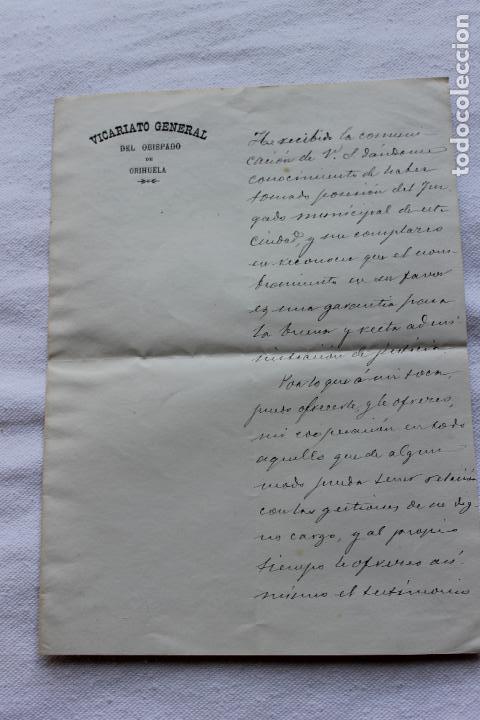 VICARIATO GENERAL
DEL OBISPADO
DE
ORIHUELA
He recibido la comuni
cación de V. S dándome
conocimiento de haber
tomado posesión del Juz
gado municipal de esta
ciudad, y me complazco
en reconocer que el nom
bramiento en su favor
es una garantia para
la buena y recta admi
nistración de justicia.
Por lo que á mi toca,
puedo ofrecerle, y le ofrezco,
mi cooperación en todo
aquello que de algun
modo pueda tener relación
con las gestiones de su dig
no cargo, y al propio
tiempo le ofrezco asi
mismo el testimonio
todocoleccion